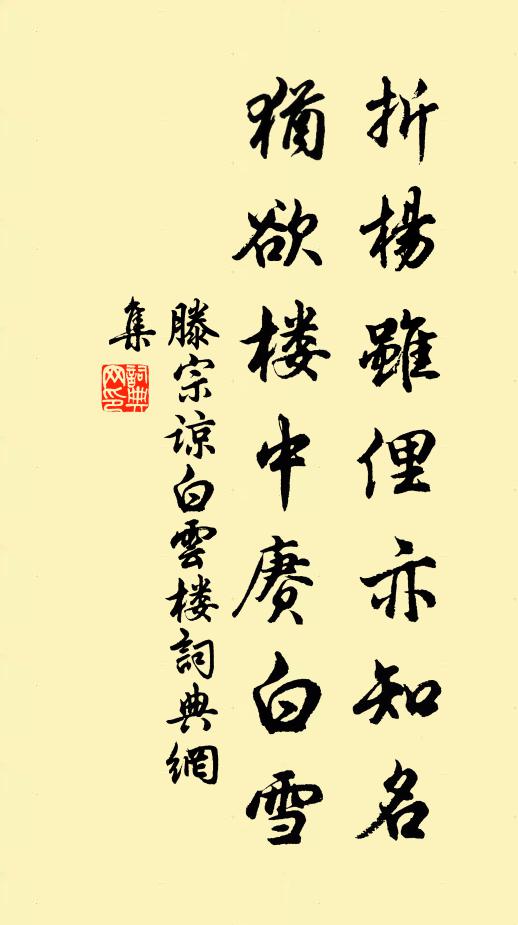 折楊雖俚亦知名
猶欲楼中赓白雪
滕宗谅白雲楼詞典網
集
詞典
网印